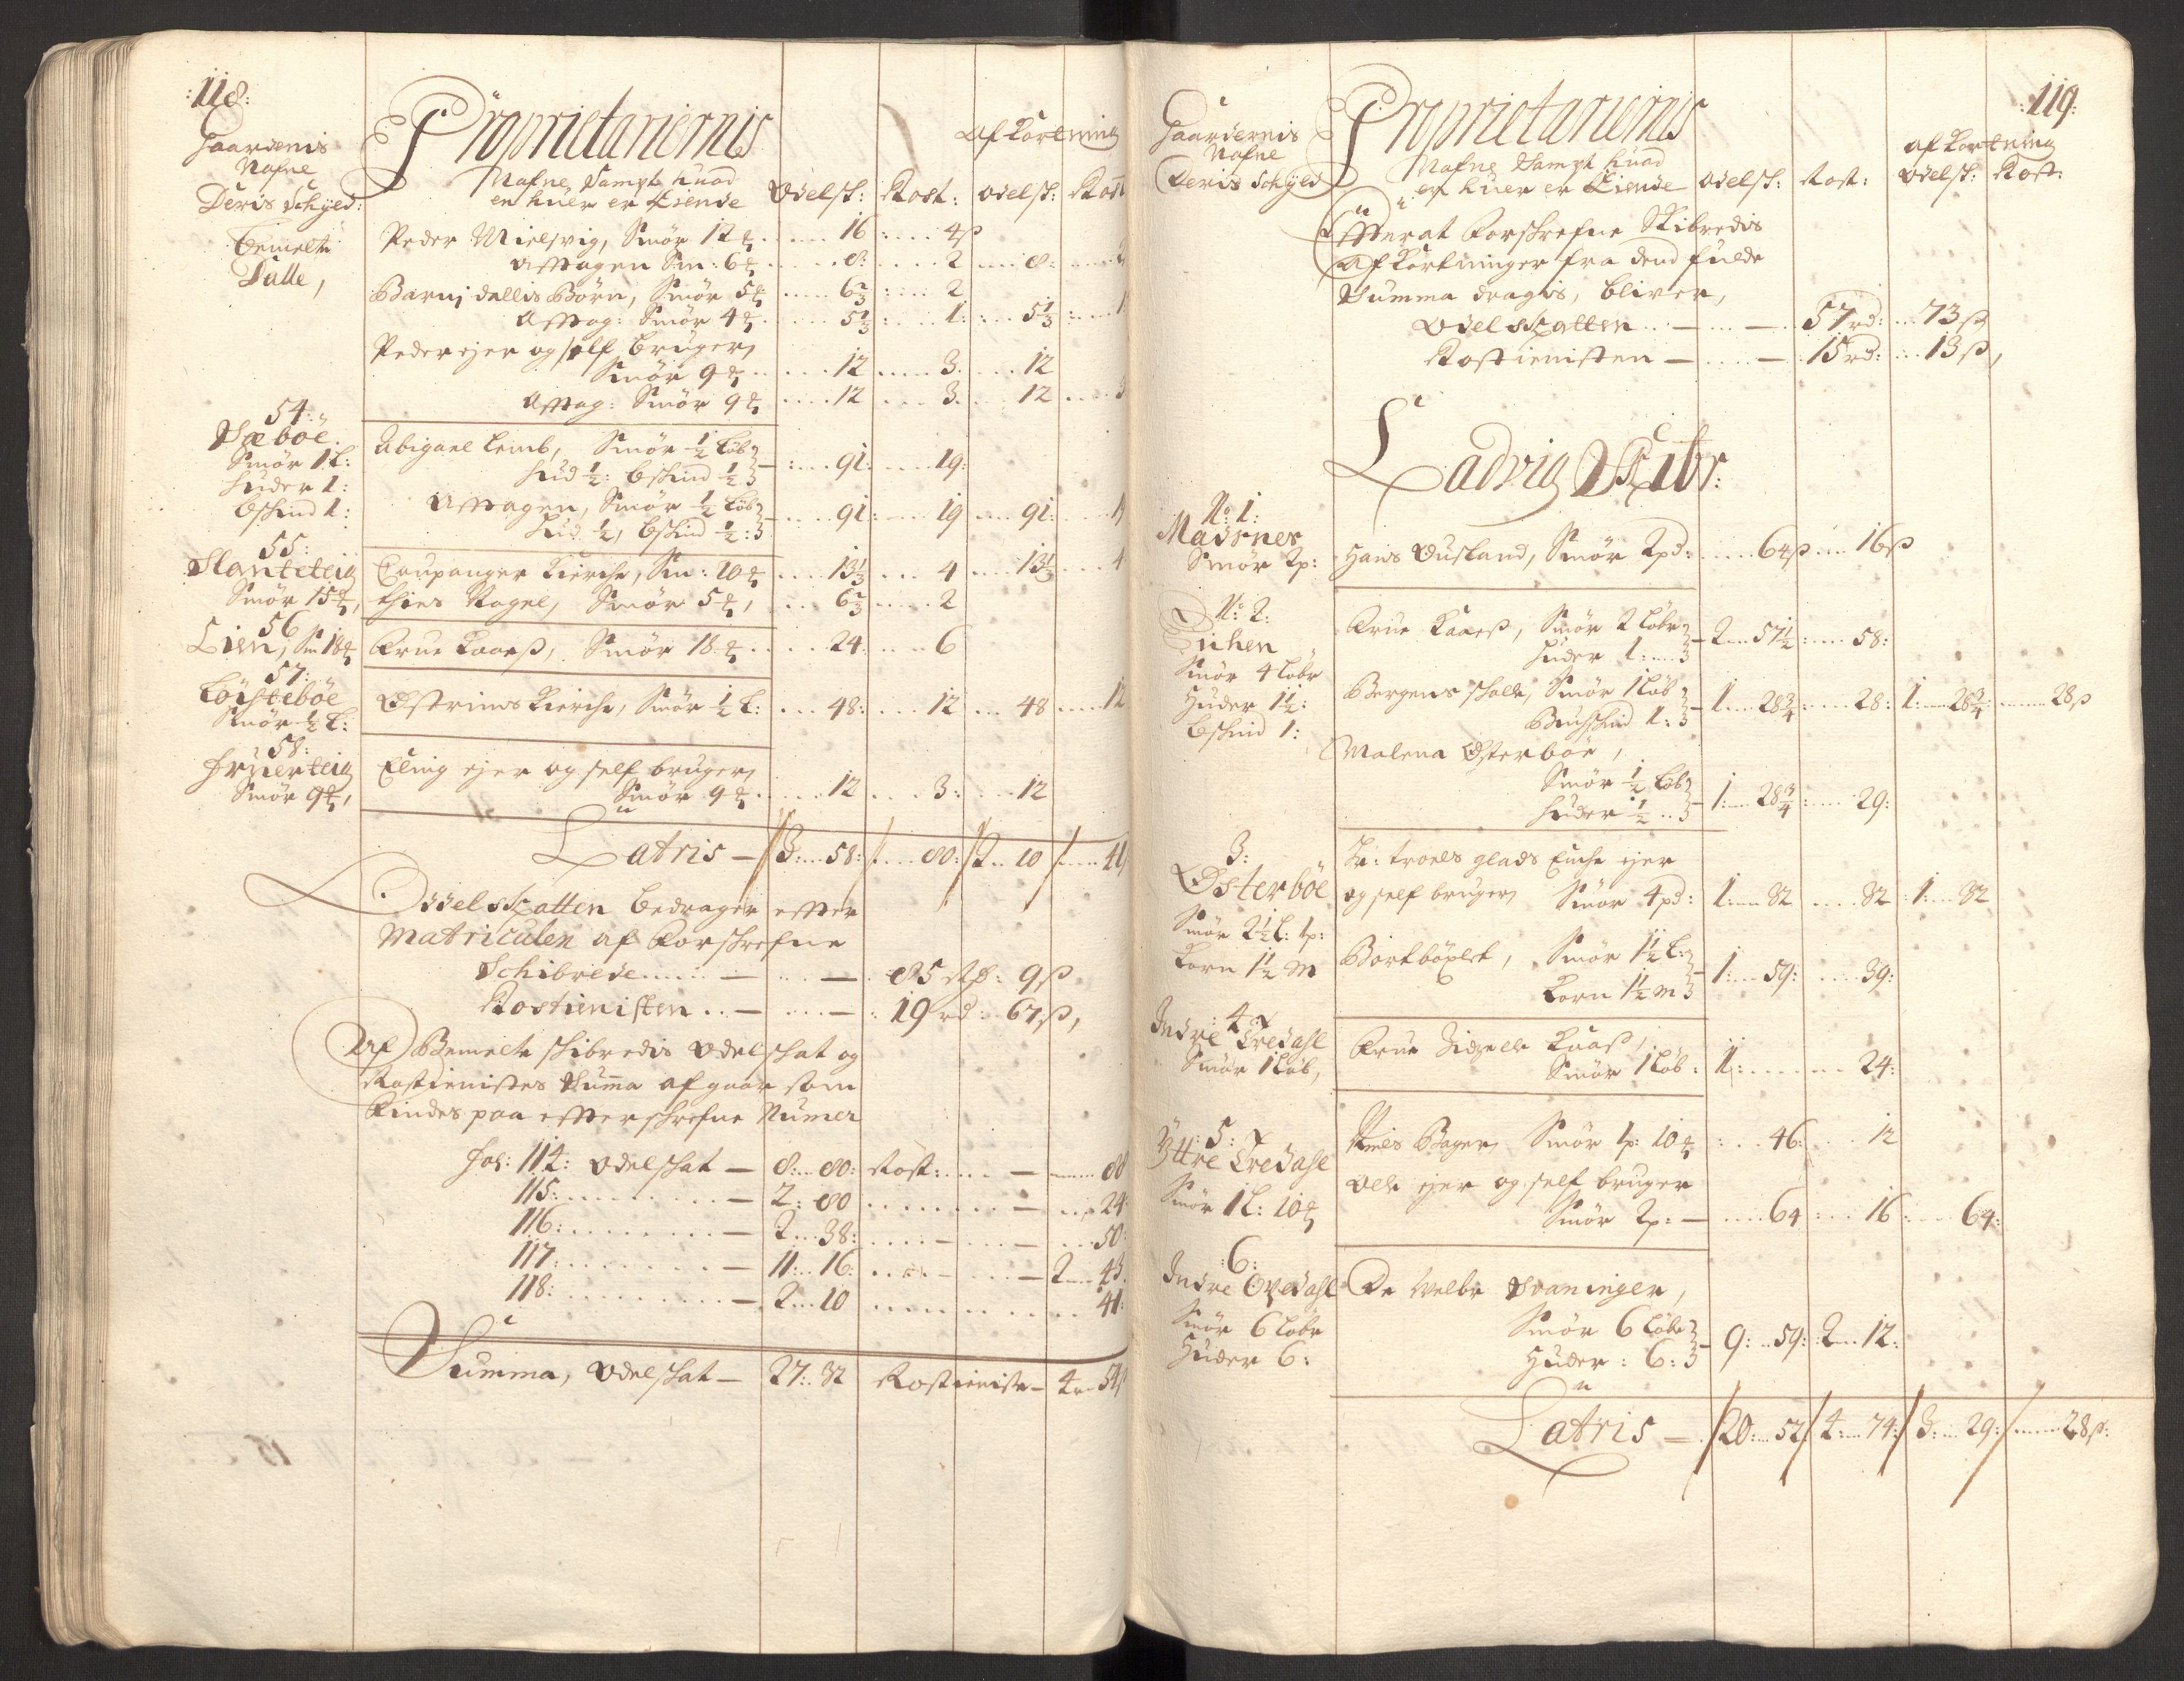 :118:
Gaardenis
Nafne
Deris Schyld:
Proprietariernis
Nafne Sampt huad
en huer er Eiende
Odelsk:
Rost:
Afkortning
odelsk:
Rost
Bemelte
Dalle,
Peder Mielsvig, Smør 12 16 4ß
Afftagen Sm: 6 8: 2 8:
Barnj dallis Børn, Smør 5 6⅔ 2
Afftag: Smør 4 5⅓ 1: 5⅓
Peder ejer og self bruger,
Smør 9 12 3. 12
Afftag: Smør 9 12 3. 12
54:
Sæböe.
Smör 1 L:
huder 1:
bskind 1:
Abigael Lemb, Smør ½ Løb
hud ½: bskind ½ 91: 19:
Afftagen, Smør ½ Løb
hud ½, bskind ½: 91: 19 91:
55:
Slanteteig
Smör 15,
Caupanger Kierche, Sm: 10 13⅓ 4 13⅓ 4
thies Nagel, Smør 5, 6⅔ 2
56
Lien, Sm 18
Frue Kaaß, Smør 18 24: 6
57:
Löisteböe
Smör ½ L:
Østrims Kierche, Smör ½ L: 48: 12 48 12
58:
Fruerteig
Smör 9,
Elling ejer og self bruger,
Smör 9 12 3: 12
Latris 3: 58: 80: 2 10 41
Odelsskatten bedrager effter
Matriculen af Forschrefne
Schibrede 85 Rd: 9ß
Rostienisten 19 rd: 67ß,
Af Bemelte schibredis Odelschat og
Rostienistes Summa afgaar som
Findes paa efftterschrefne Numer
Fol: 114: Odelschat 8: 80: Rost: 80
115: 2: 80 24
116: 2 38: 50
117: 11: 16: 2 43.
118: 2 10 41:
Summa, Odelschat 27: 32 Rostieniste 4 54ß
:119:
Gaardernis
Nafne
Deris Schyld
Proprietariernis
Nafne Sampt huad
en huer er Eiende
odelsk:
Rost:
af Kortning
Odelsk:
Rost:
Effterat Forschrefne Skibredis
Afkortninger fra dend fulde
Summa dragis, bliver,
Odelsskatten 57 rd: 73ß
Rostienisten 15 rd: 13ß,
Ladvig Skibr:
No: 1:
Madsnes
Smör 2p:
Hans Ousland, Smör 2pd: 64ß 16ß
No: 2:
Tichen
Smör 4 Løbe
Huder 1½:
bskind 1:
Frue Kaaß, Smör 2 Løbe
Huder 1: 2 57½ 58:
Bergens schole, Smör 1 Løb
Buchskind 1: 1 28¾ 28: 1: 28¾: 28ß
Malena Østerböe,
Smör ½ Løb
huder ½ 1: 28¾ 29:
3:
Østerböe
Smör 2½ L: 1p:
Korn 1½ M
Hr: troels glads Enche ejer
og self bruger, Smör 4pd: 1: 32 32 1: 32
Smör 1½ L:
Korn 1½ M 1: 59: 39:
:4:
Indre Tredahl
Smör 1 Løb,
Frue Zidzele Kaaß,
Smör 1 Løb: 1: 24:
5:
Yttre Tredahl
Smör 1 L: 10
Niels Bager, Smör 1p: 10 46: 12
Ole ejer og self bruger
Smör 2p: 64 16 64:
:6:
Indre Opedahl
Smör 6 Løbe
Huder 6:
De Velbr Svaninger,
Smör 6 Løbe
Huder: 6: 9: 59: 2 12:
Latris 20: 52 4: 74: 3: 29: 28ß: